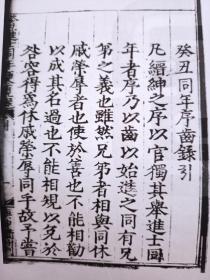 癸丑同年序齒錄引
凡縉紳之序以官獨其舉進士同
年者序乃以齒以始進之同有兄
弟之義也雖然兄弟者相與同休
戚榮辱者也使於善也不能相勸
以成其名過也不能相規以免於
咎容得為休戚榮辱同乎故予嘗